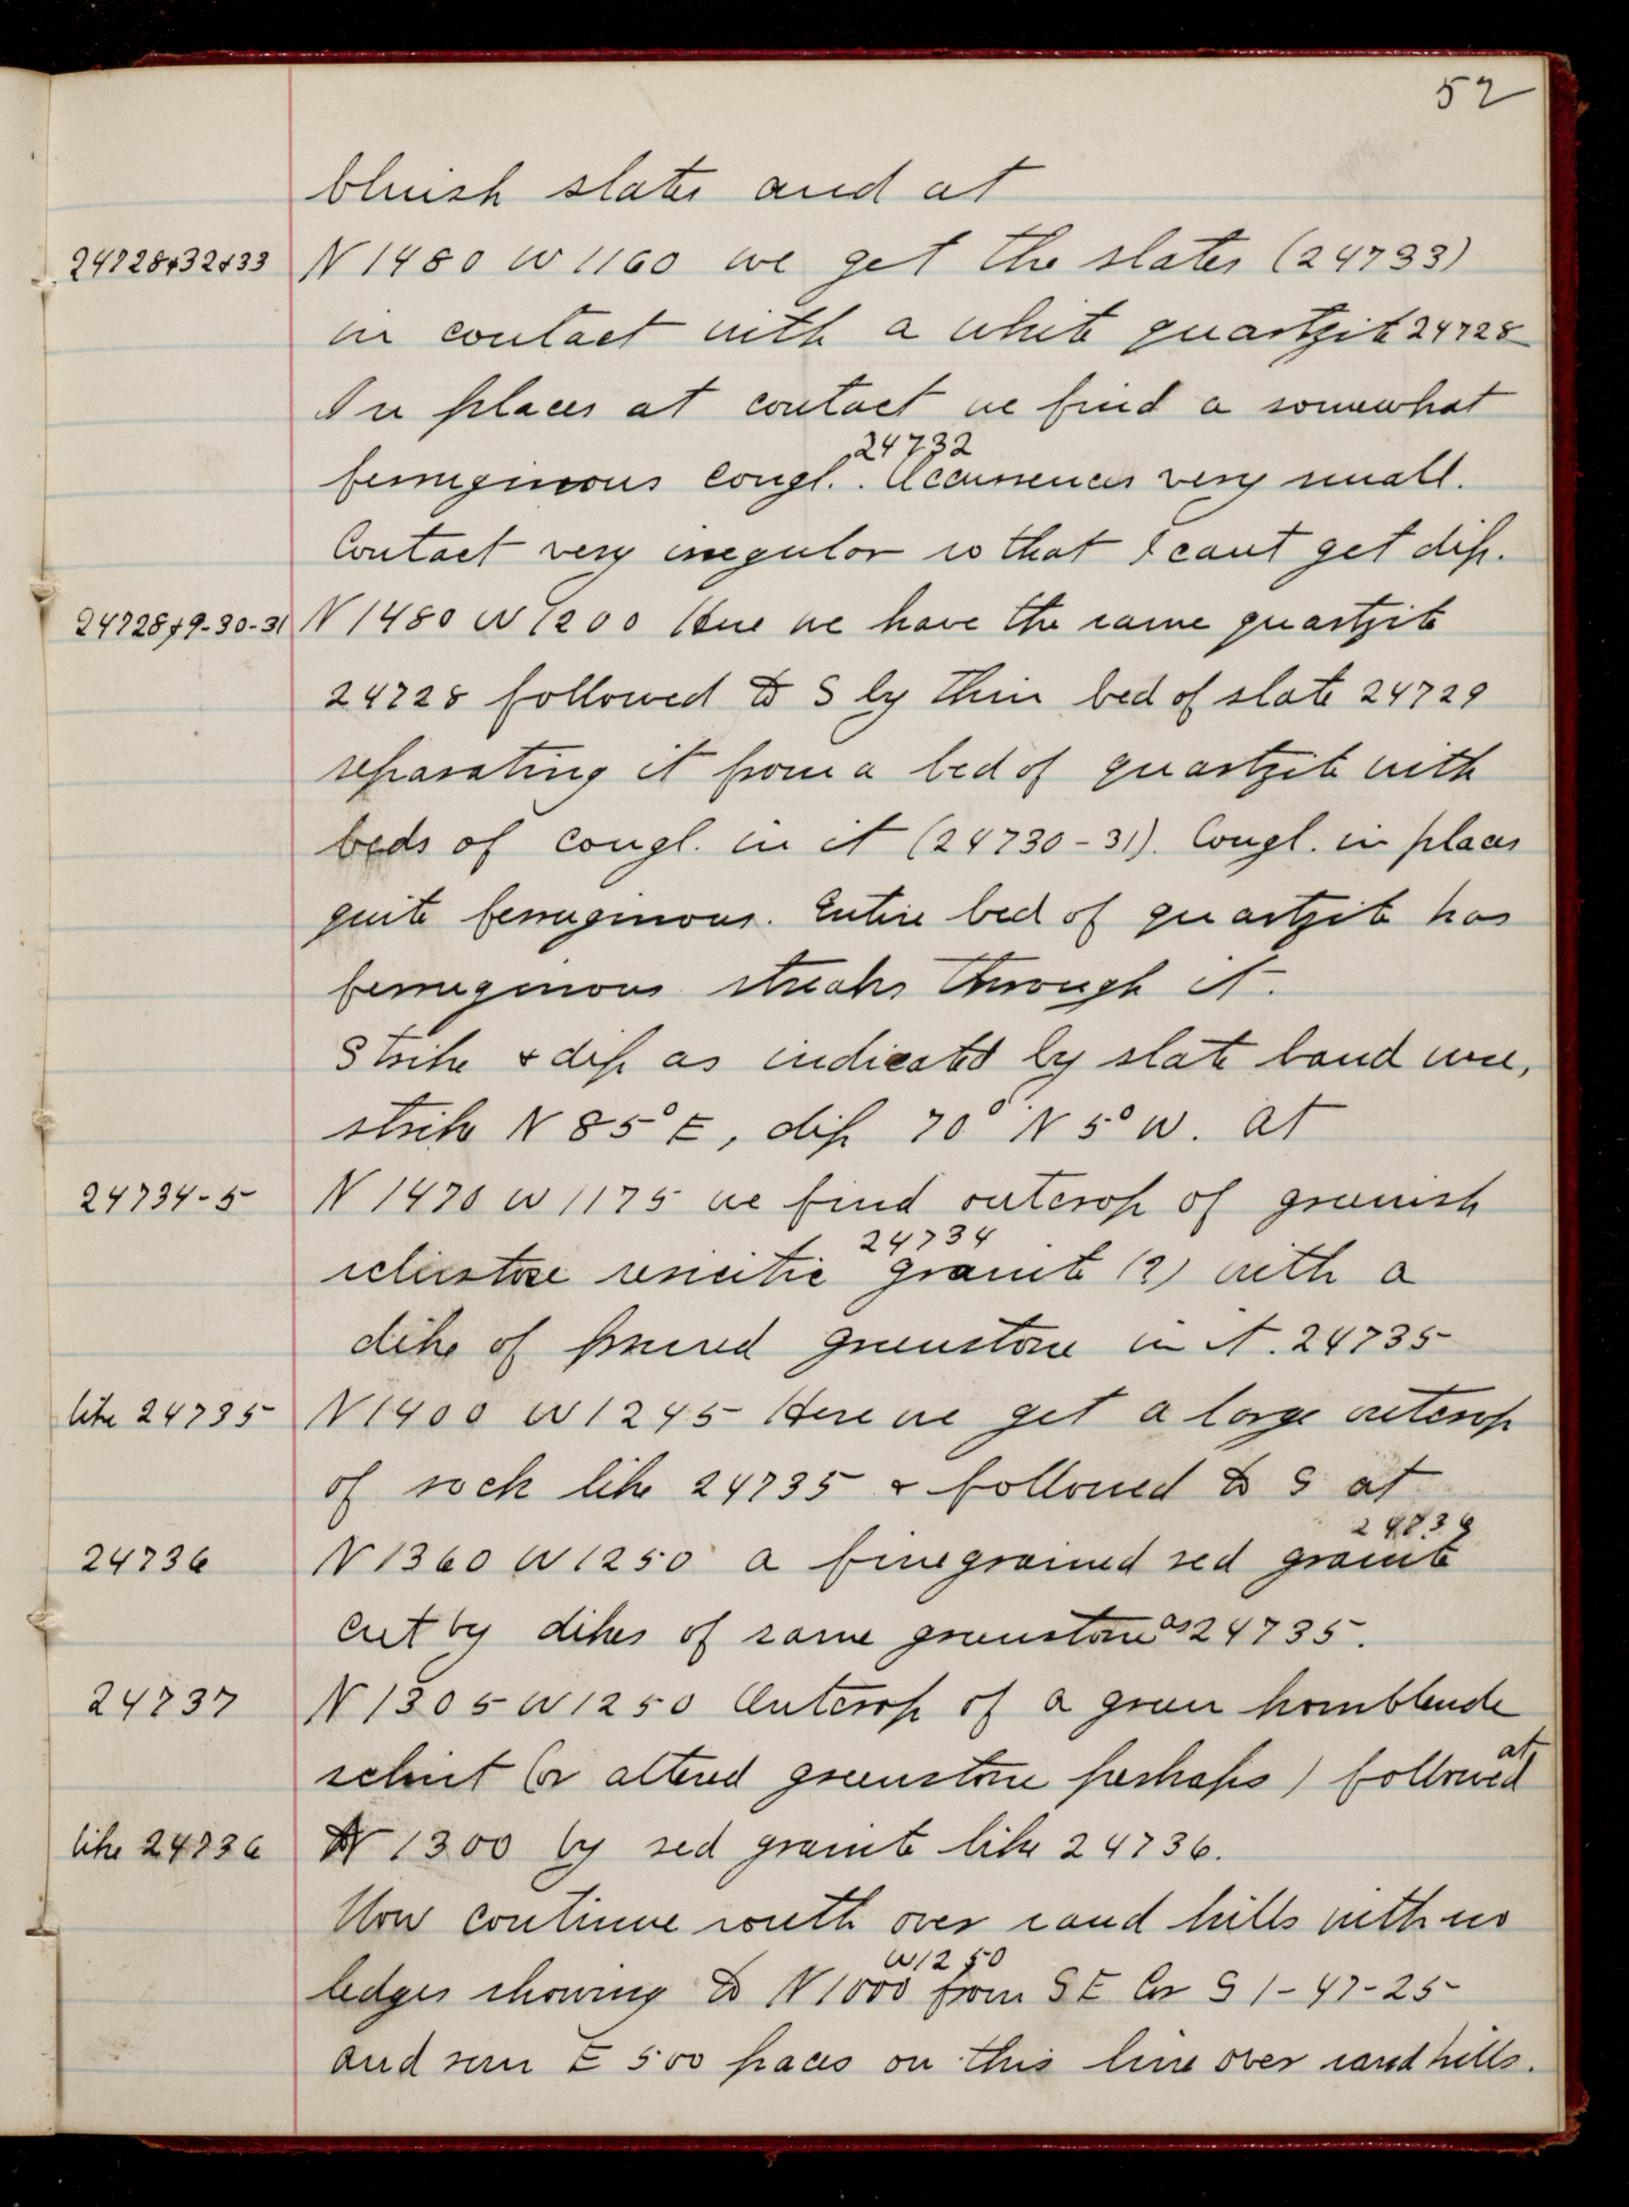 52
bluish slates and at
24728+32+33 N 1480 W 1160 we get the slates (24733)
in contact with a white quartzite 24728
In places at contact we find a somewhat
24732
ferruginous congl. . Occurrences very small.
Contact very irregular so that I cant get dip.
24728+9-30-31 N 1480 W 1200 Here we have the same quartzite
24728 followed to S by thin bed of slate 24729
separating it from a bed of quartzite with
beds of congl. in it (24730-31). Congl. in places
quite ferruginous. Entire bed of quartzite has
ferruginous streaks through it.
Strike + dip as indicated by slate band were,
strike N 85° E, dip 70° N 5° W. At
24734-5 N 1470 W 1175 we find outcrop of greenish
24734
schistose sericitic granite (?) with a
dike of sheared greenstone in it. 24735
like 24735 N 1400 W 1245 Here we get a large outcrop
of rock like 24735 + followed to S at
24736
24736 N 1360 W 1250 a fine grained red granite
cut by dikes of same greenstone as 24735.
24737 N 1305 W 1250 Outcrop of a green hornblende
at
schist (or altered greenstone perhaps) followed
like 24736 N 1300 by red granite like 24736.
Now continue south over sand hills with no
W 1250
ledges showing to N 1000 from SE Cor S 1-47-25
and run E 500 paces on this line over sand hills.